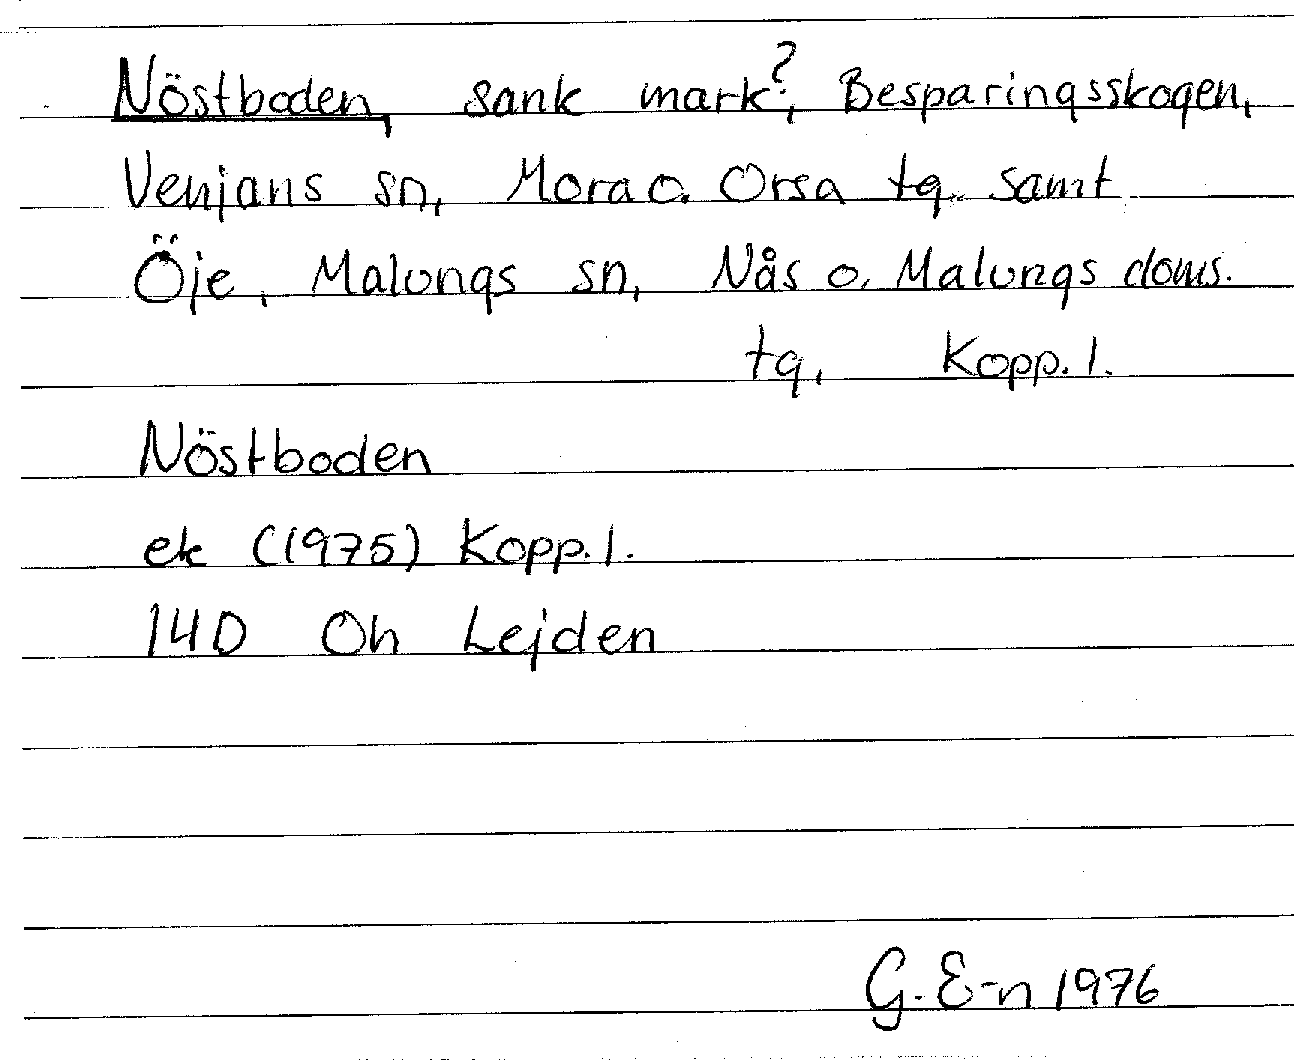 Nöstboden, sank mark?, Besparingsskogen,
Venjans sn, Mora o. Orsa tg. samt
Öje, Malungs sn, Nås o. Malungs doms.
tg, Kopp. l.
Nöstboden
ek (1975) Kopp. l.
14D Öh Lejden
G. E-n 1976